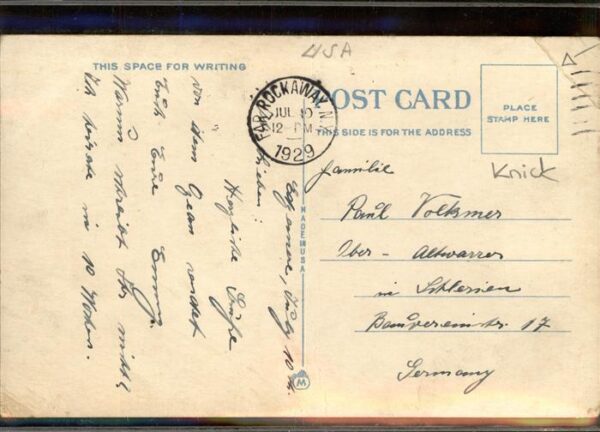 USA
THIS SPACE FOR WRITING
FAR ROCKAWAY N.Y.
JUL 10
12-PM
1929
POST CARD
THIS SIDE IS FOR THE ADDRESS
PLACE
STAMP HERE
Knick
Familie
Paul Volkmer
Ober - Altwasser
in Schlesien
Bauvereinstr. 17
Germany
MADE IN USA
M
Edgemere, July 10th.
Lieben!
Herzliche Grüße
von dem Ozean sendet
Euch Eure
Warum schreibt Ihr nicht?
Ich heirate in 10 Wochen.